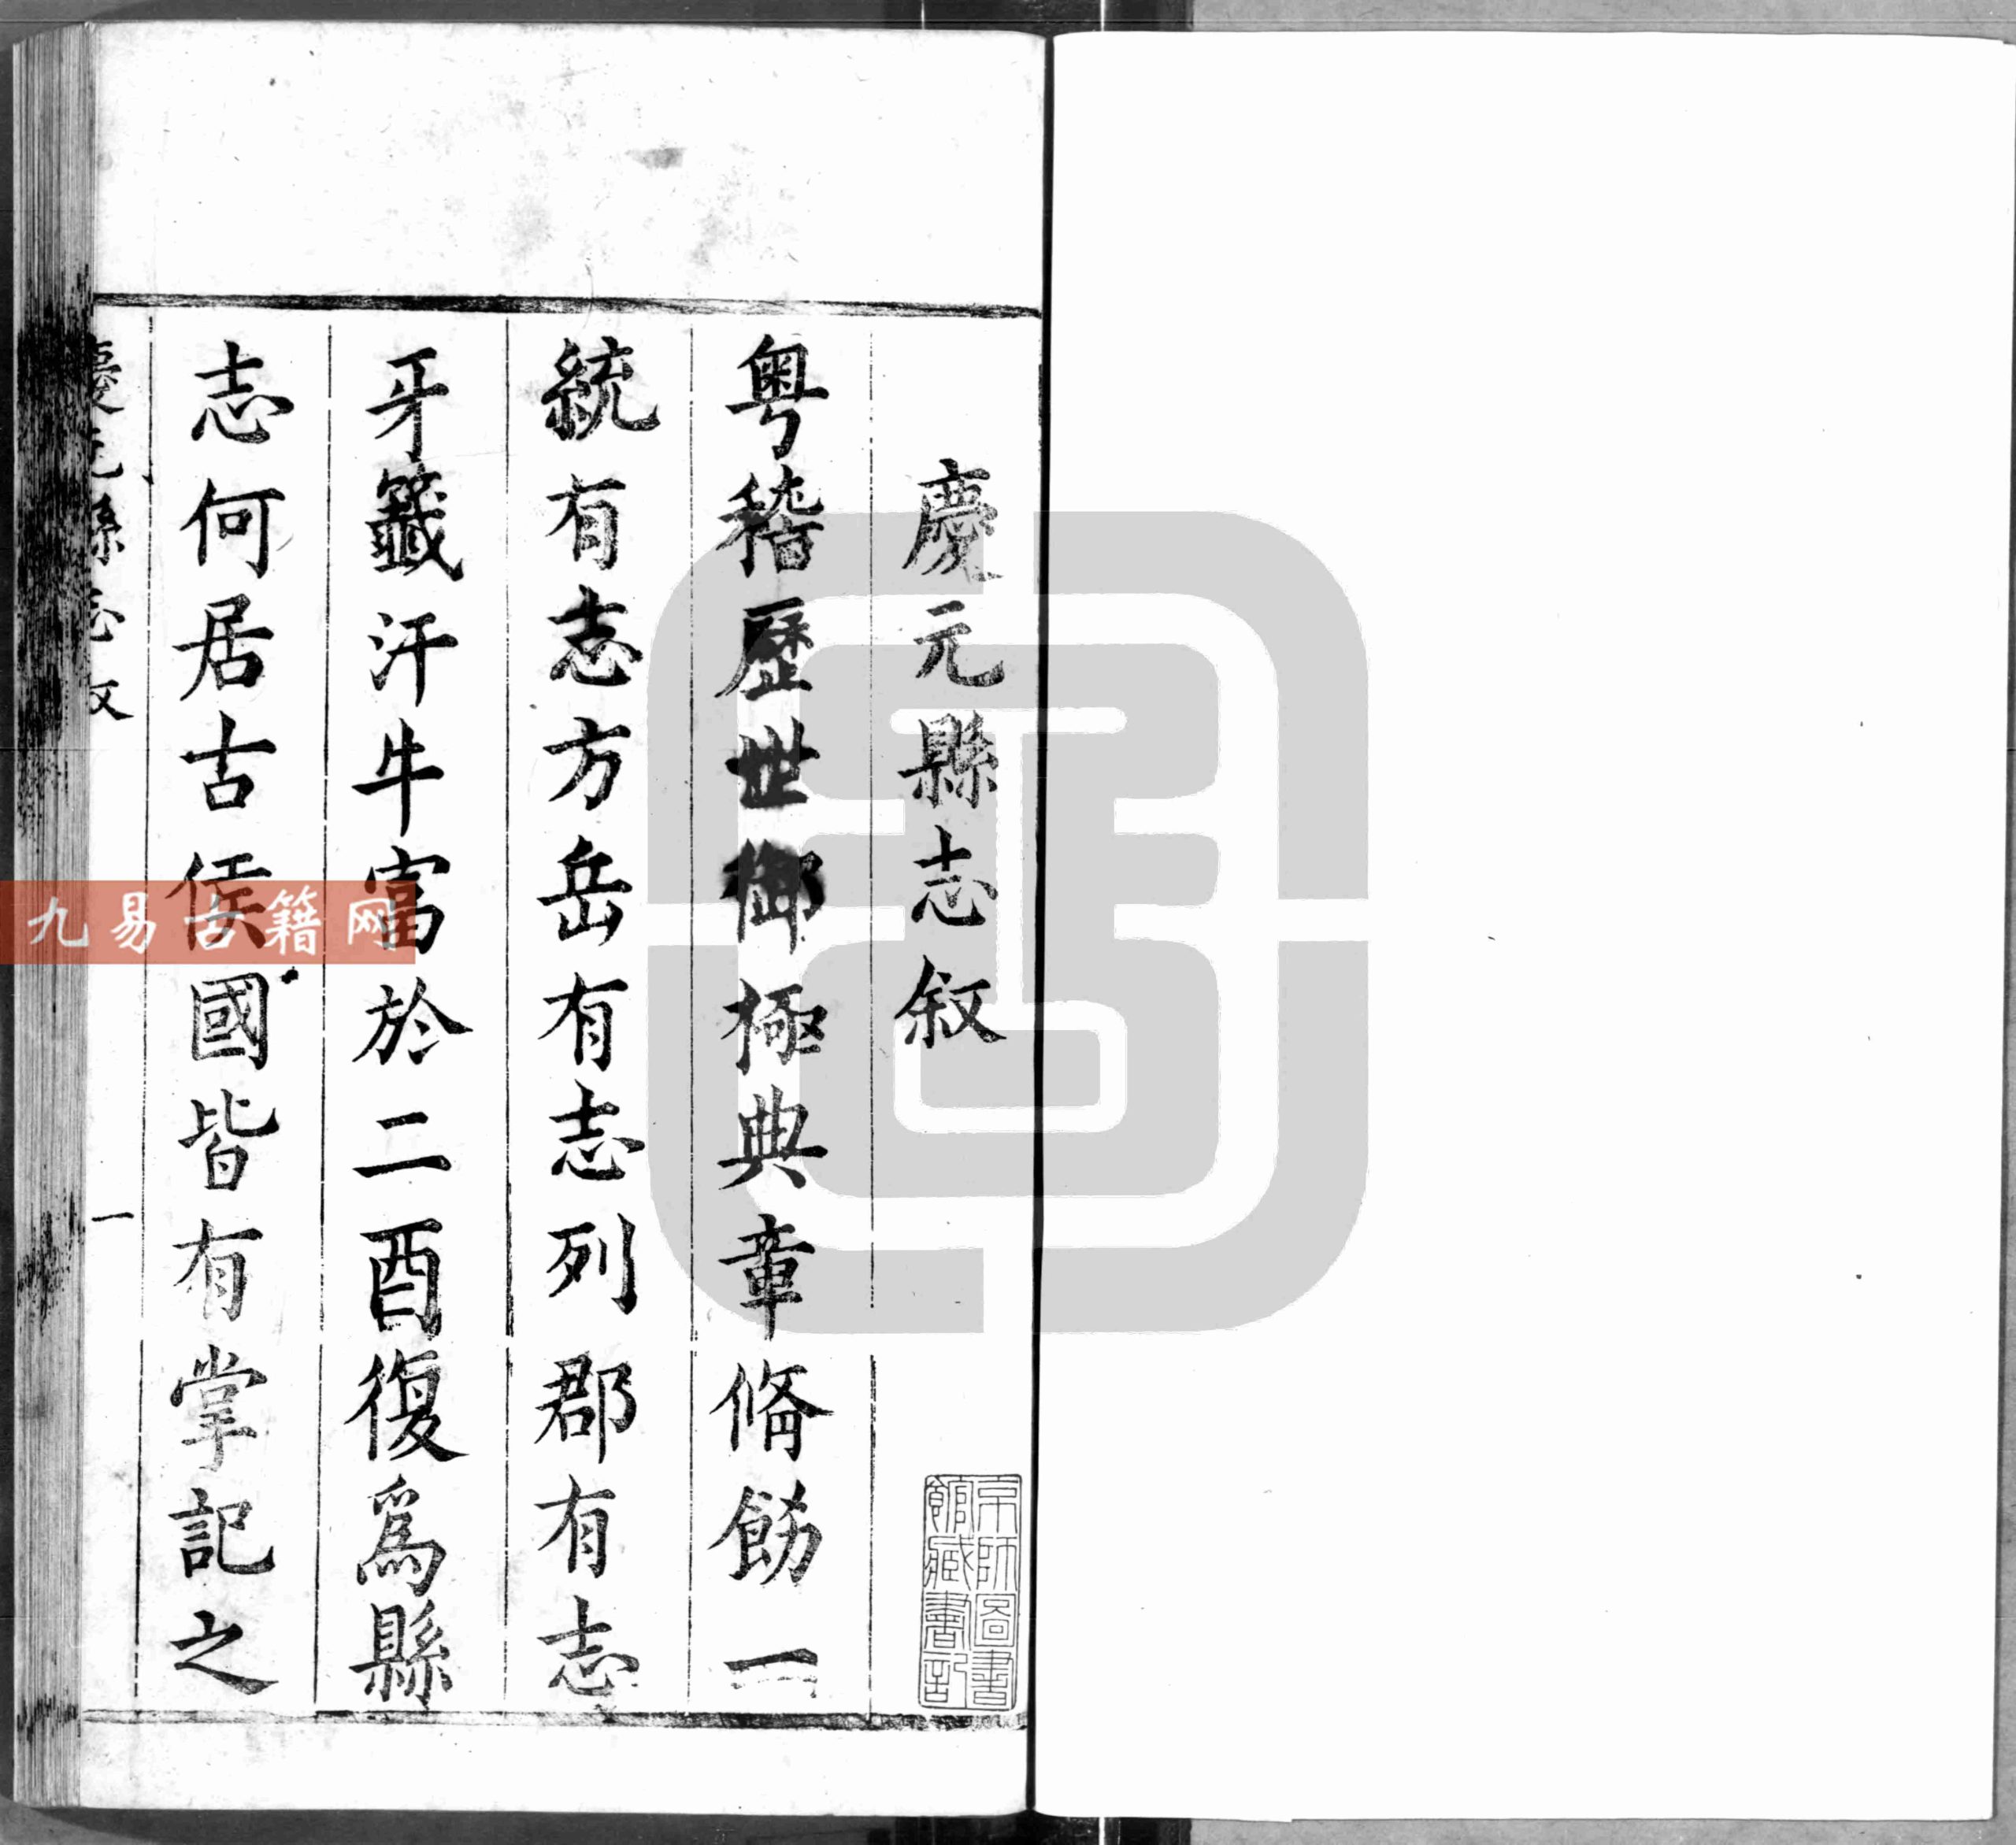 慶元縣志叙
粤稽歷世御極典章脩飭一
統有志方岳有志列郡有志
牙籤汗牛富於二酉復爲縣
志何居古侯國皆有掌記之
慶元縣志叙 一
京師圖書
館藏書記
九易古籍网